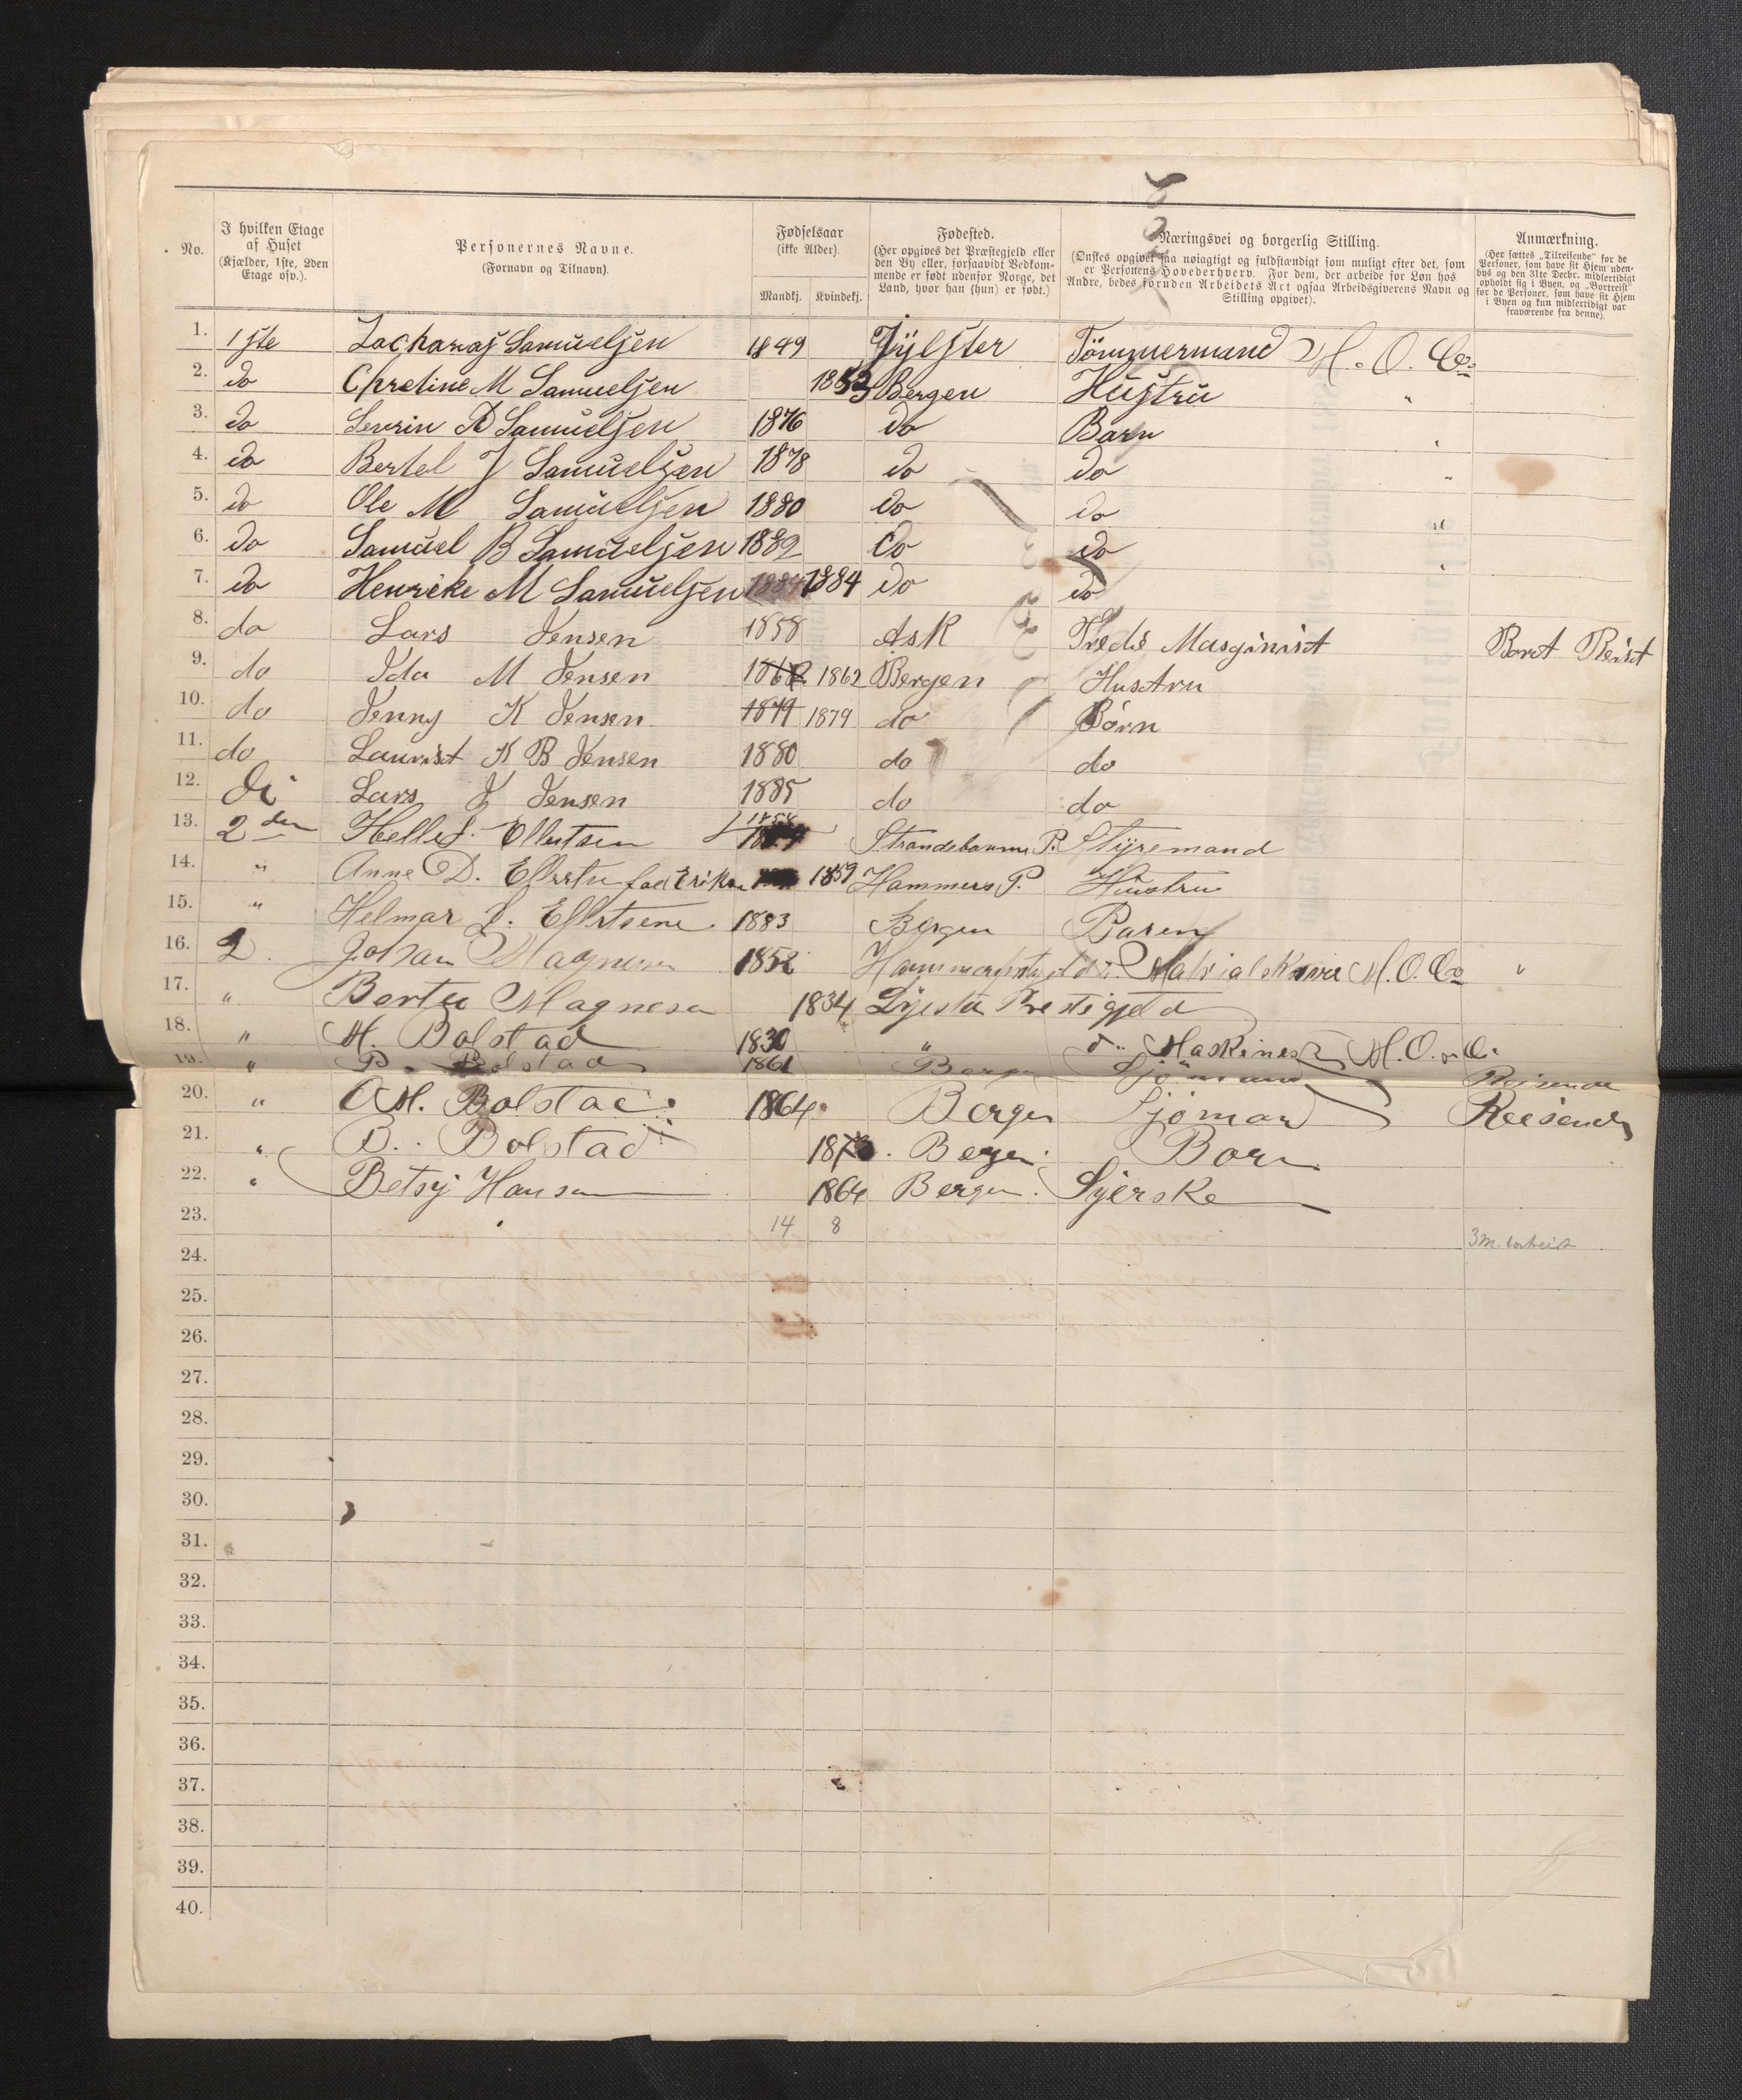 No. | I hvilken Etage af Huset (Kjælder, 1ste, 2den Etage osv.). | Personernes Navne. (Fornavn og Tilnavn). | Fødselsaar (ikke Alder). Mandkj. Kvindekj. | Fødested. (Her opgives det Præstegjeld eller den By eller, forsaavidt Vedkommende er født udenfor Norge, det Land, hvor han (hun) er født.) | Næringsvei og borgerlig Stilling. (Ønskes opgivet saa nøiagtigt og fuldstændigt som muligt efter det, som er Personens Hovederhverv. For dem, der arbeide for Løn hos Andre, bedes foruden Arbeidets Art ogsaa Arbeidsgiverens Navn og Stilling opgivet). | Anmærkning. (Her sættes „Tilreisende" for de Personer, som have sit Hjem udenbys og den 31te Decbr. midlertidigt opholdt sig i Byen, og „Bortreist" for de Personer, som have sit Hjem i Byen og kun midlertidigt var fraværende fra denne).
1. 1ste Zacharias Samuelsen 1849 Jylster Tømmermand M. O. Co
2. do Chrestine M Samuelsen 1853 Bergen Hustru "
3. do Sevrin R Samuelsen 1876 do Barn "
4. do Bertel J Samuelsen 1878 do do "
5. do Ole M Samuelsen 1880 do do "
6. do Samuel B Samuelsen 1882 do do "
7. do Henrike M Samuelsen 1884 1884 do do
8. do Lars Jensen 1858 Ask Tredie Masginist Bort Reist
9. do Ida M Jensen 1862 1862 Bergen Hustru
10. do Jenny K Jensen 1879 1879 do Børn
11. do Laurist K B Jensen 1880 do do
12. do Lars J Jensen 1885 do do
13. 2den Helle S. Ellertsen 1854 Strandebarm P. Styremand
14. " Anne D. 1859 Hammers P. Hustru
15. " Helmar L. Ellertsene 1883 Bergen Baren
16. 2. Johan Magnesen 1852 M. O. Co "
17. " Berte Magnesen 1834 Prestigjeld
18. " M. Bolstad 1830 " do Maskinest M. O. & Co.
19. " P. Bolstad 1861 Bergen Sjömand Reisende
20. " A M. Bolstad 1864 Bergen Sjöman Reisende
21. " B. Bolstad Bergen. Born
22. " Betsy Hansen 1864 Bergen. Syerske
23. 14 8
24. 3 m. bortreist
25.
26.
27.
28.
29.
30.
31.
32.
33.
34.
35.
36.
37.
38.
39.
40.